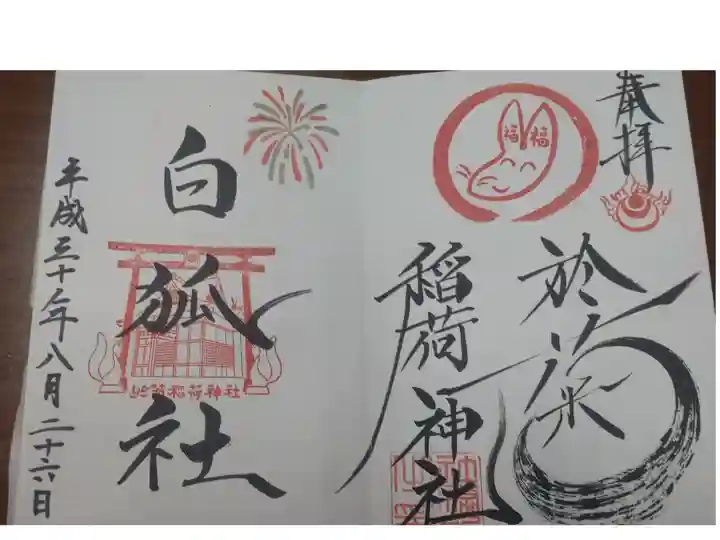 奉拝
於菊
稲荷神社
福 福
白狐社
於菊稲荷神社
平成三十年八月二十六日